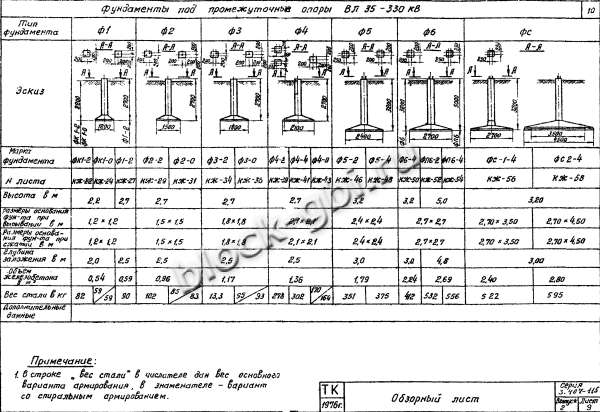 Фундаменты под промежуточные опоры ВЛ 35-330 кВ
10
Тип фундамента Ф1 Ф2 Ф3 Ф4 Ф5 Ф6 Фс
Эскиз
А-А А-А А-А А-А А-А А-А А-А
2200 2700 2700 2700 2700 3200 3200 5000 3200
1200 1500 1800 2100 2400 2700 2700 3500 4500
Марка фундамента ФК1-2 ФК1-0 Ф1-2 Ф2-2 Ф2-0 Ф3-2 Ф3-0 Ф4-2 Ф4-4 Ф4-0 Ф5-2 Ф5-4 Ф6-4 Ф П6-2 Ф П6-4 Фс-1-4 Фс 2-4
N листа КЖ-22 КЖ-24 КЖ-27 КЖ-29 КЖ-31 КЖ-34 КЖ-36 КЖ-39 КЖ-41 КЖ-43 КЖ-46 КЖ-48 КЖ-50 КЖ-52 КЖ-54 КЖ-56 КЖ-58
Высота в м 2,2 2,7 2,7 2,7 2,7 3,2 3,2 5,0 3,20
Размеры основания фун-та при вырывании в м 1,2 × 1,2 1,5 × 1,5 1,8 × 1,8 2,1 × 2,1 2,4 × 2,4 2,7 × 2,7 2,70 × 3,50 2,70 × 4,50
Размеры основания фун-та при сжатии в м 1,2 × 1,2 1,5 × 1,5 1,8 × 1,8 2,1 × 2,1 2,4 × 2,4 2,7 × 2,7 2,70 × 3,50 2,70 × 4,50
Глубина заложения в м 2,0 2,5 2,5 2,5 2,5 3,0 3,0 4,8 3,00
Объем железобетона в м³ 0,54 0,59 0,96 1,17 1,36 1,79 2,24 2,69 2,40 2,80
Вес стали в кг 82 59/59 90 102 85/83 133 95/93 278 302 170/164 351 375 412 532 556 522 595
Дополнительные данные
block-gbi.ru
Примечание:
1. В строке „Вес стали" в числителе дан вес основного
варианта армирования, в знаменателе - вариант
со спиральным армированием.
ТК 1976г.
Обзорный лист
Серия 3.407-115
Выпуск 2 Лист 9